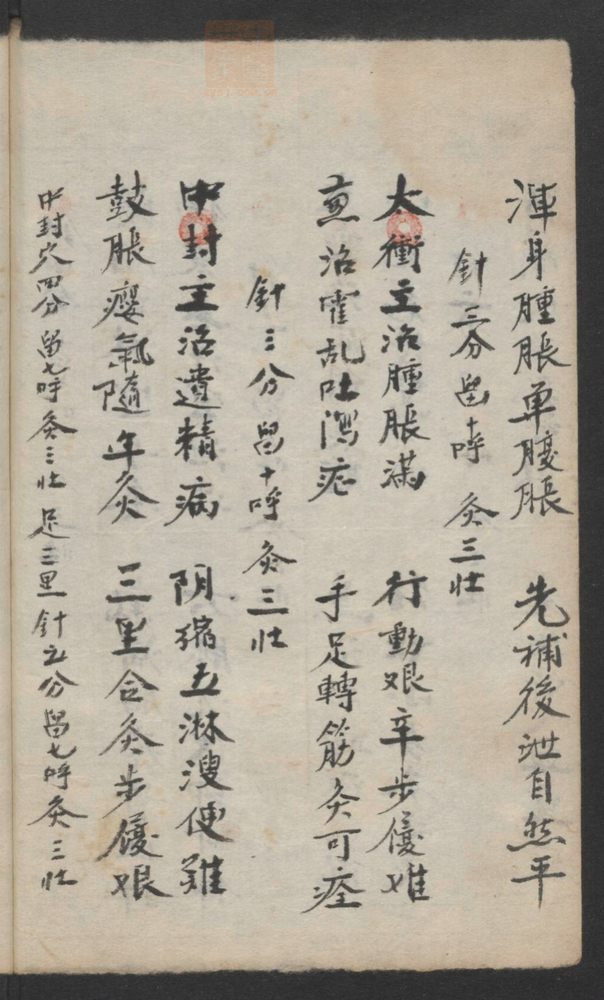 渾身腫脹單腹脹　先補後泄自然平
針三分留十呼　灸三壮
太衝主治腫脹滿　行動艰辛步履难
兼治霍乱吐瀉症　手足轉筋灸可痊
針三分留十呼灸三壮
中封主治遺精病　阴缩五淋溲便难
鼓脹瘿氣隨年灸　三里合灸步履艰
中封穴四分留七呼灸三壮　足三里針五分留七呼灸三壮